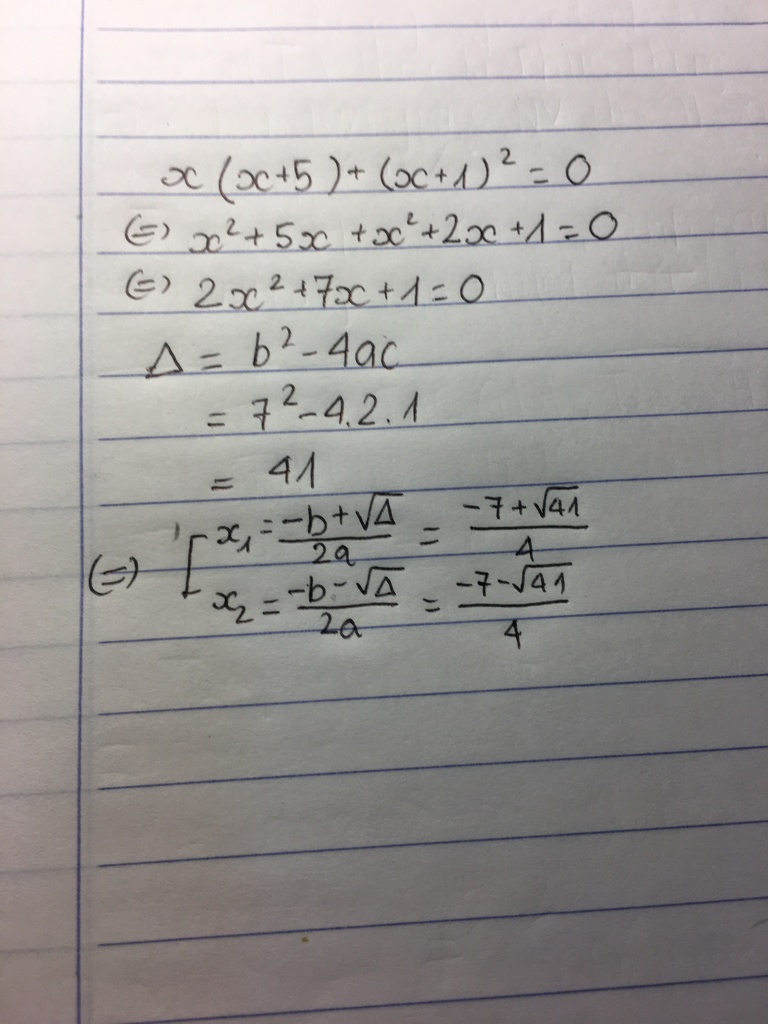 x(x+5)+(x+1)² = 0
(=) x²+5x+x²+2x+1=0
(=) 2x²+7x+1=0
Δ = b²-4ac
= 7²-4.2.1
= 41
(=) [ x₁ = (-b+√Δ)/(2a) = (-7+√41)/4
x₂ = (-b-√Δ)/(2a) = (-7-√41)/4